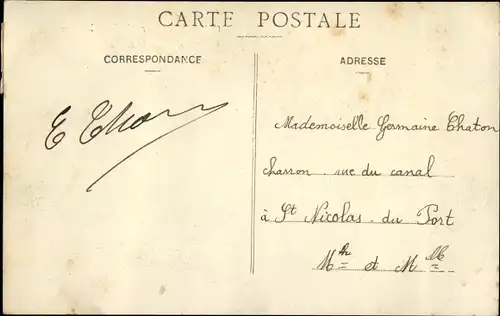 CARTE POSTALE
CORRESPONDANCE
ADRESSE
Mademoiselle Germaine Thaton
charron. rue du canal
à St Nicolas. du Port
Mthe et M Me